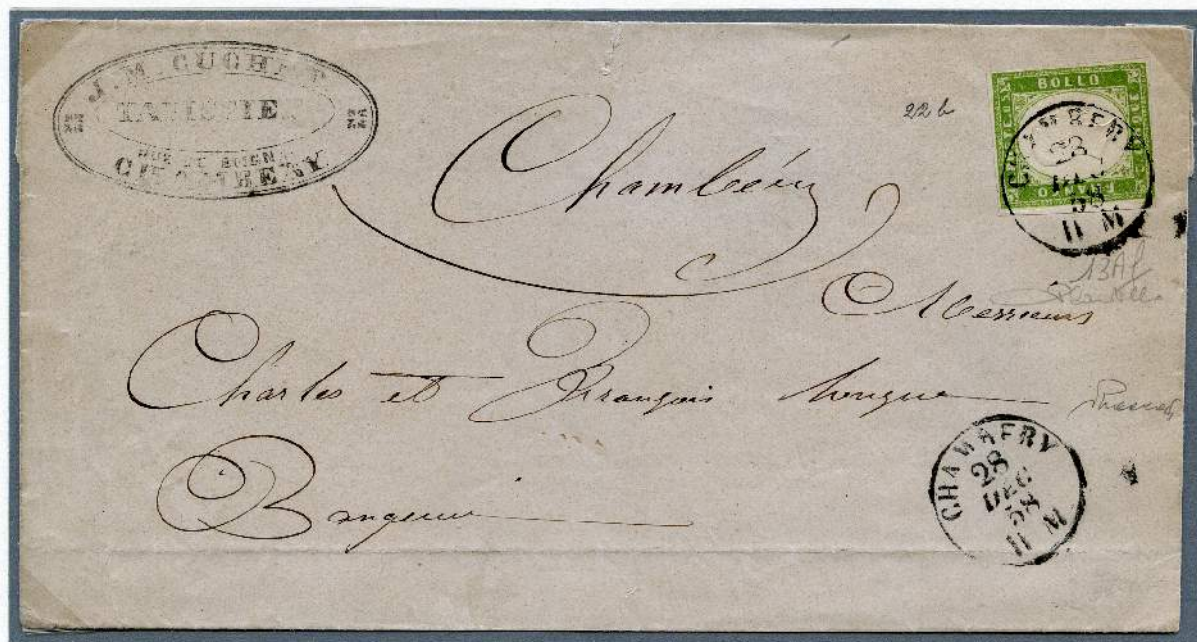 J. M. CUCHET
TAPISSIER
RUE DE BOIGNE
CHAMBERY
22 b
BOLLO
CHAMBERY
28
DEC
58
11 M
13Af
Chambéry
Messieurs
Charles et François
Banquiers
CHAMBERY
28
DEC
58
11 M